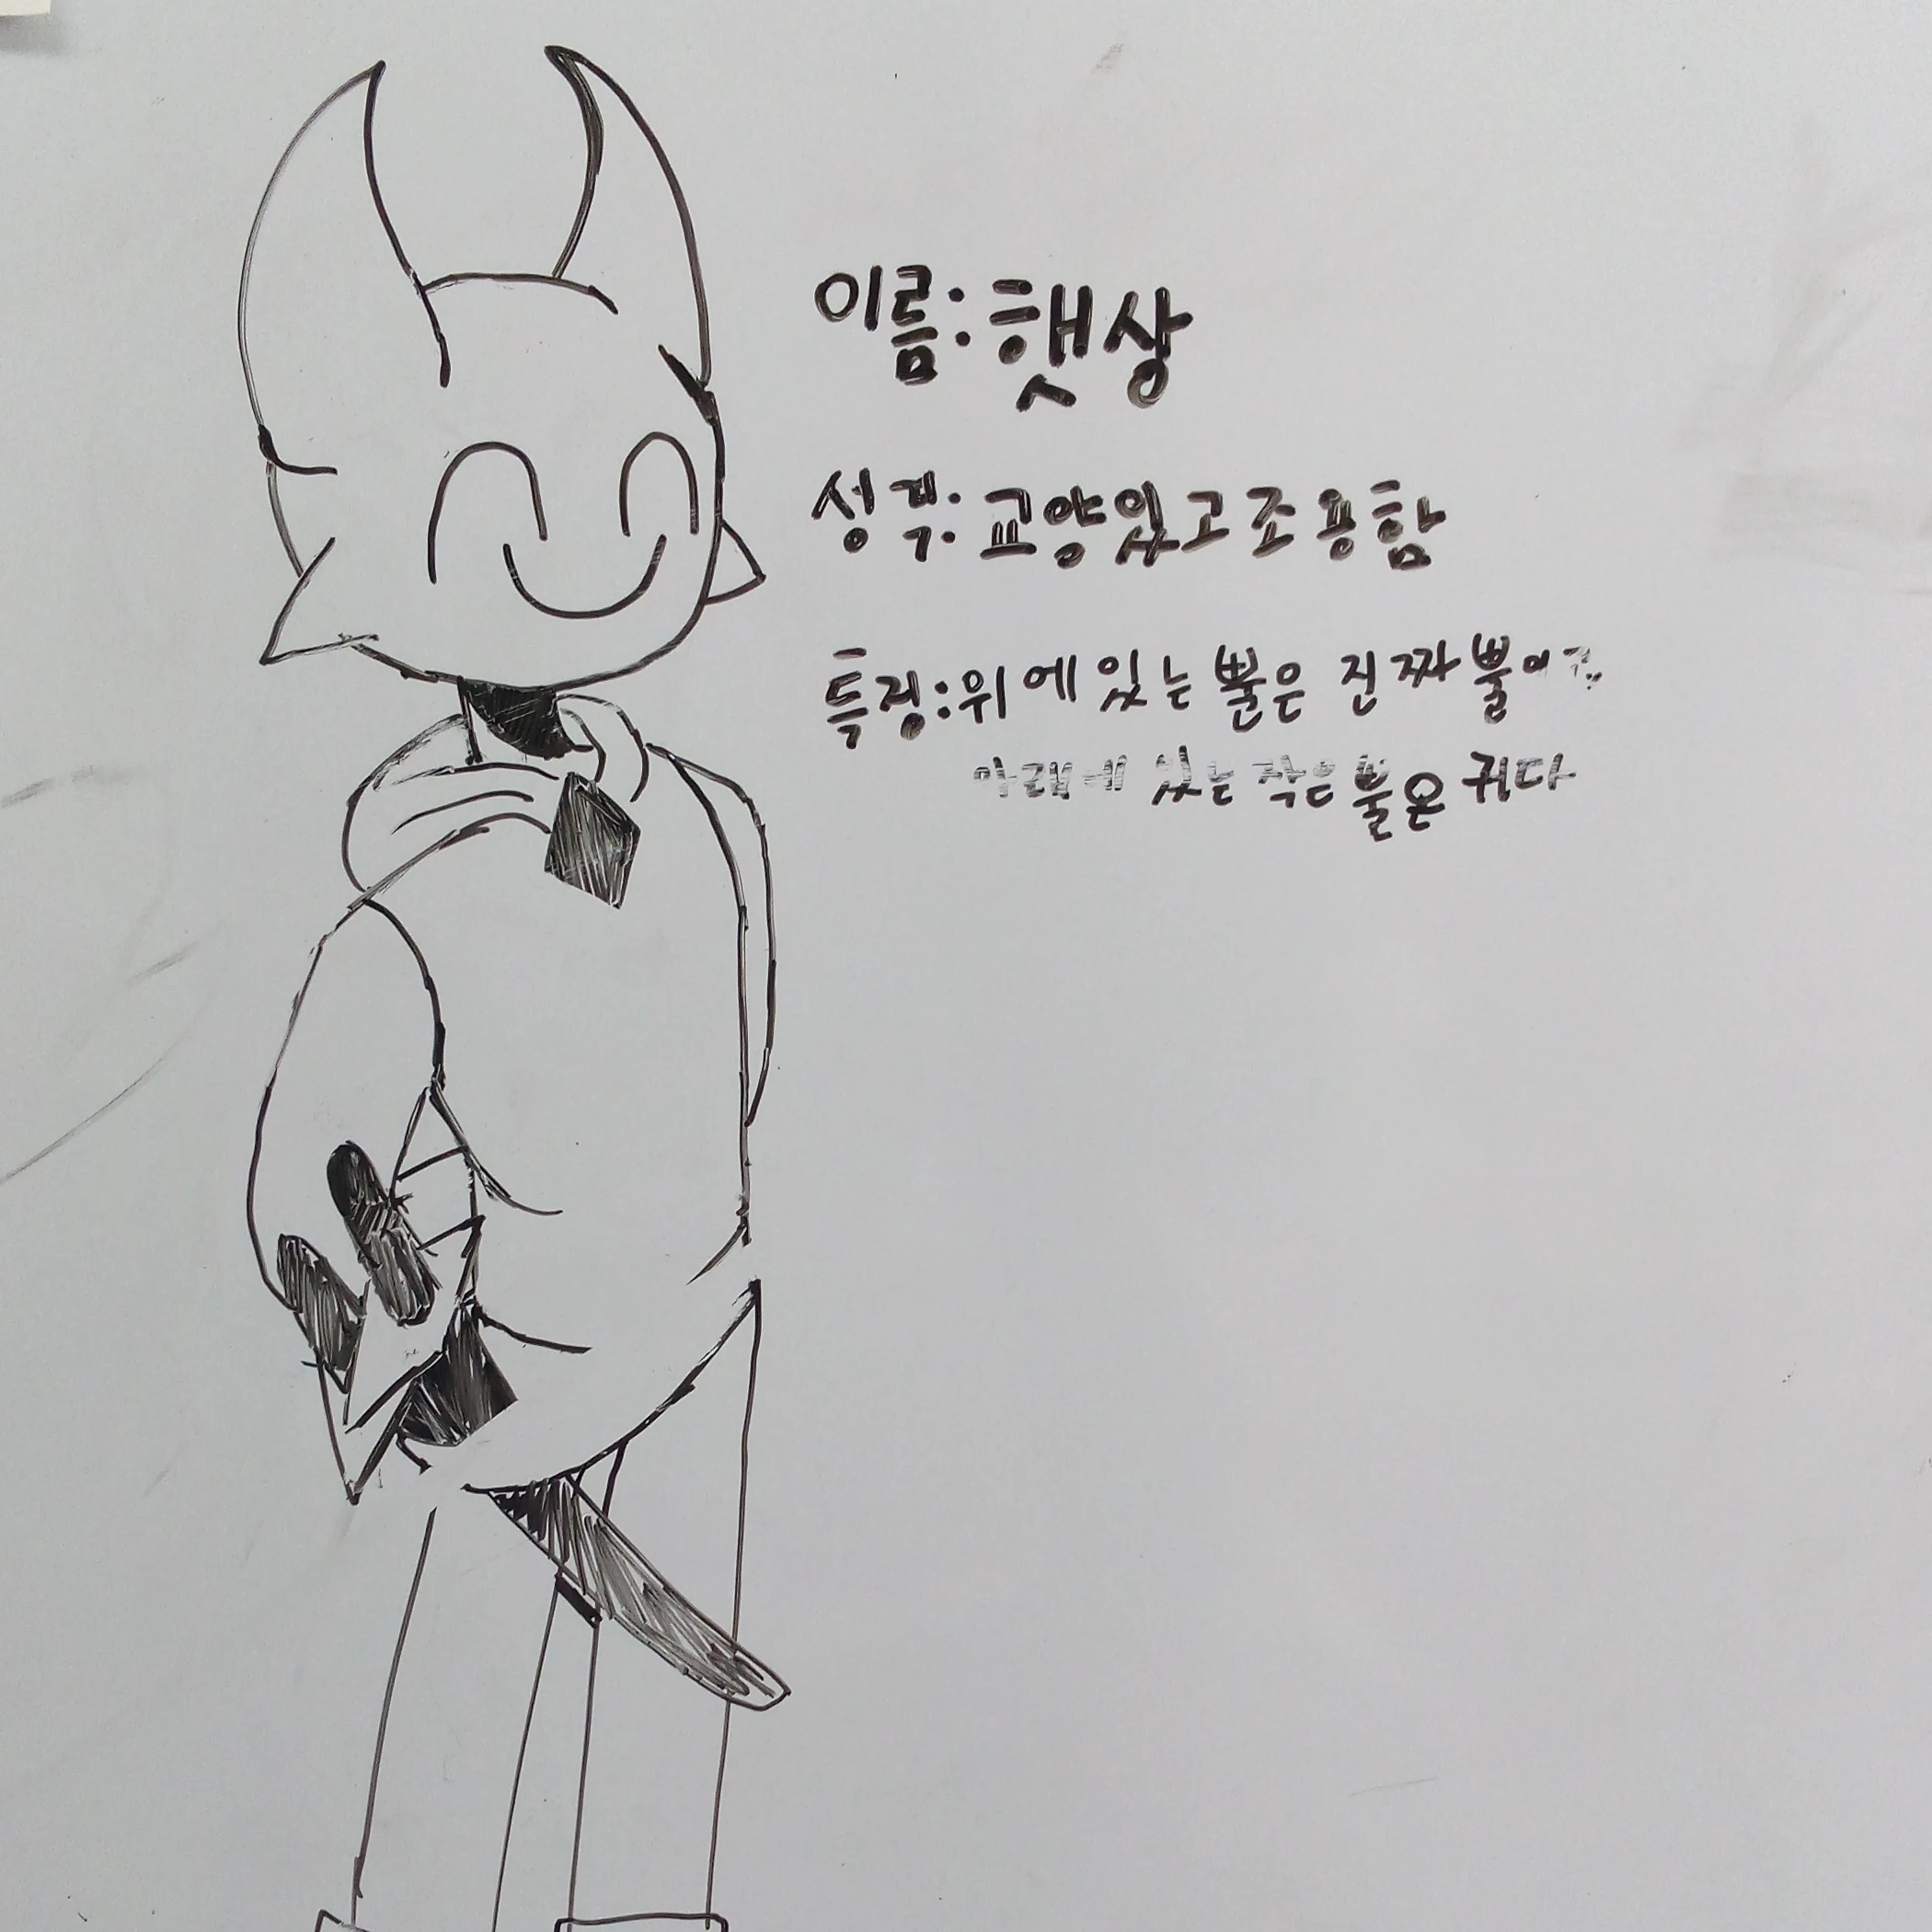 이름: 햇상
성격: 교양있고 조용함
특징: 위에 있는 뿔은 진짜 뿔이고..
아래에 있는 작은 뿔은 귀다